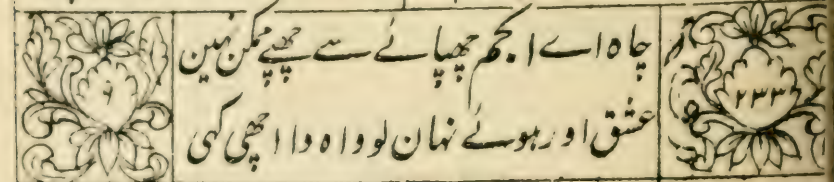 ۲۳۳
چاہ اے انجم چھپانے سے چھپے ممکن نہین
عشق اور ہوئے نہان لو واہ وا اچھی کہی
۶